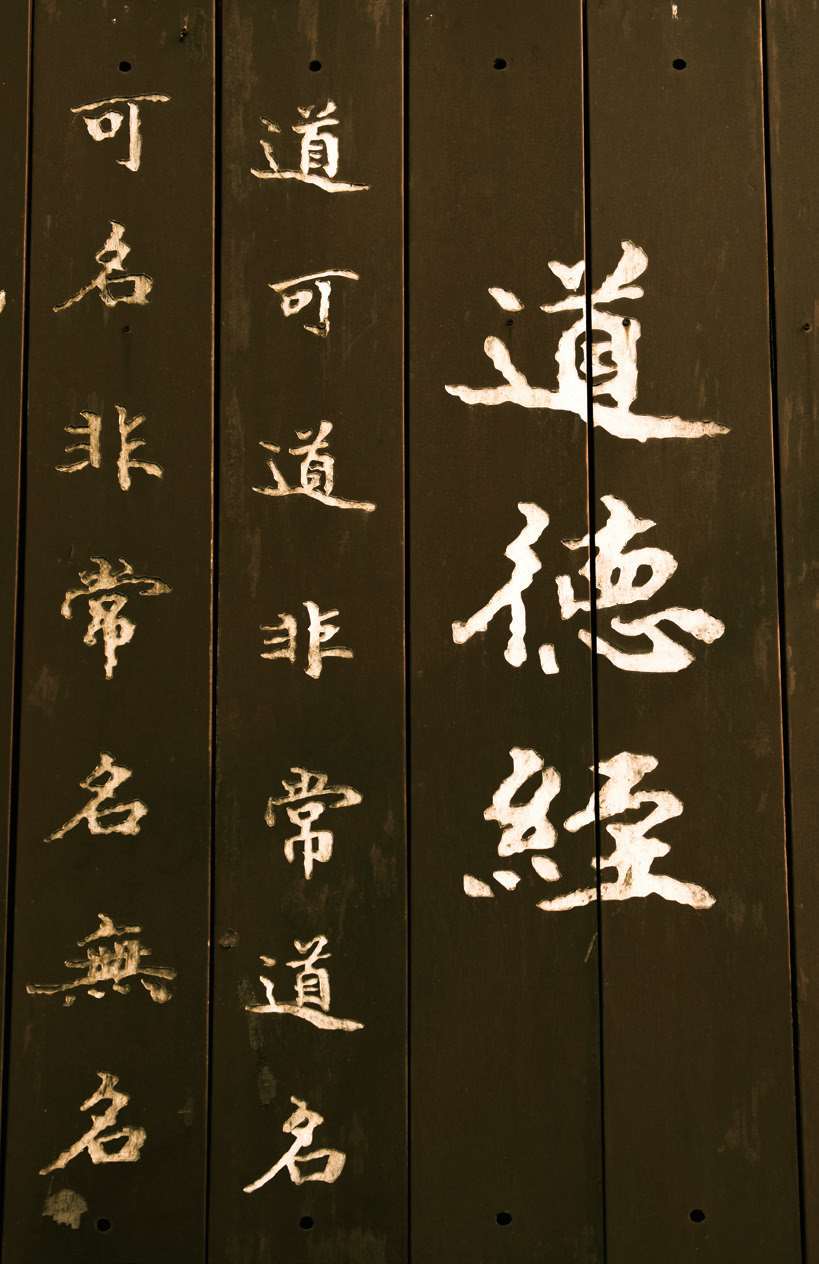 道德経
道可道非常道名
可名非常名無名